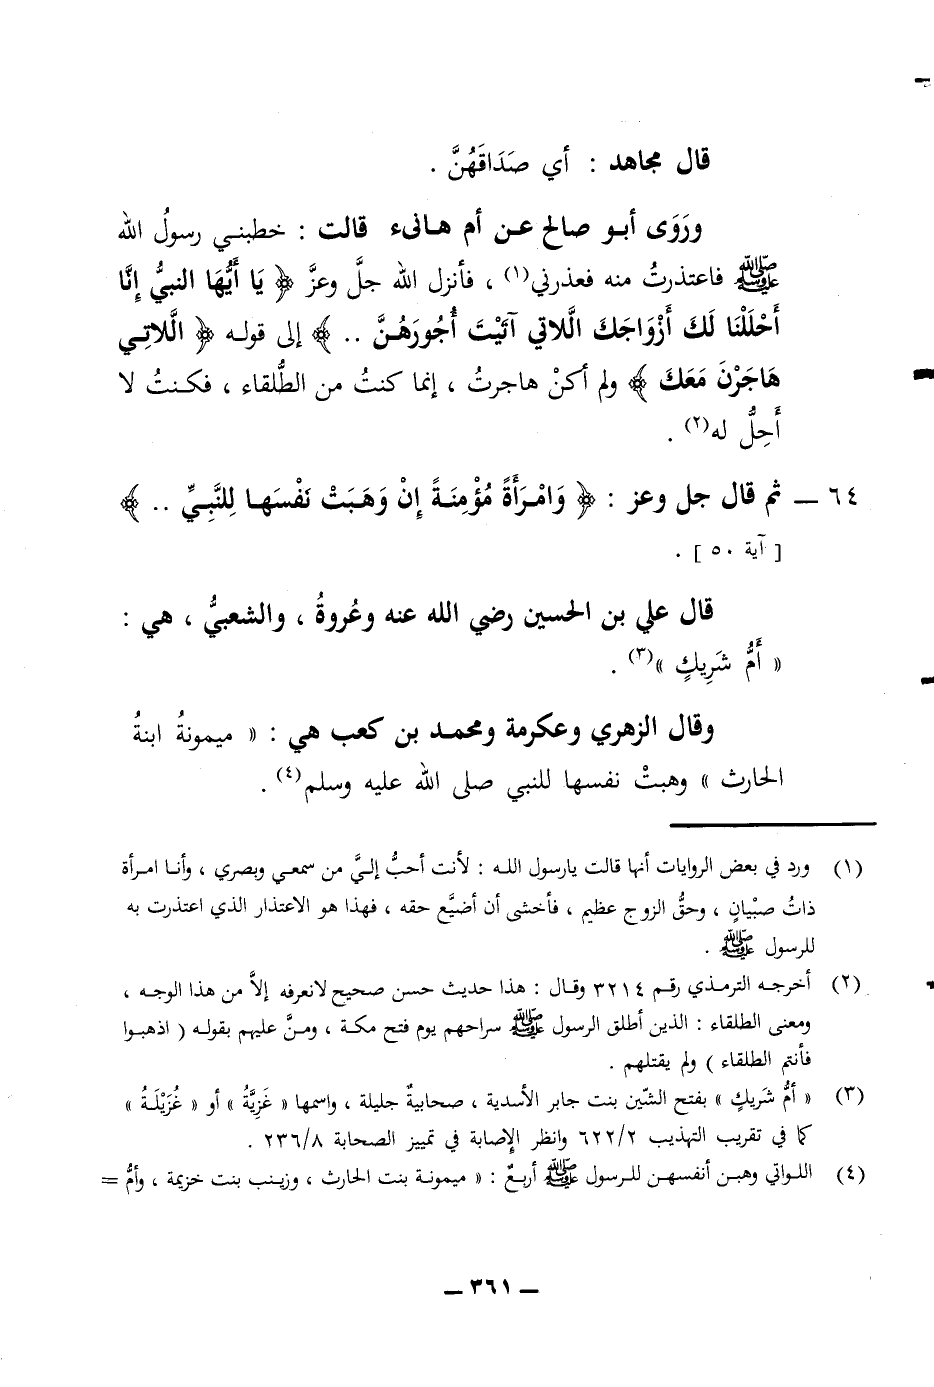 قال مجاهد : أي صَدَاقَهُنَّ .
ورَوَى أبو صالح عن أم هانىء قالت : خطبني رسولُ الله
ﷺ فاعتذرتُ منه فعذرني(١) ، فأنزل الله جلَّ وعزَّ ﴿ يَا أَيُّهَا النبيُّ إِنَّا
أَحْلَلْنَا لَكَ أَزْوَاجَكَ الَّلاتي آتَيْتَ أُجُورَهُنَّ .. ﴾ إلى قوله ﴿ الَّلاتِي
هَاجَرْنَ مَعَكَ ﴾ ولم أكنْ هاجرتُ ، إنما كنتُ من الطُّلقاء ، فكنتُ لا
أَحِلُّ له(٢) .
٦٤ ــ ثم قال جل وعز : ﴿ وَامْرَأَةً مُؤْمِنَةً إِنْ وَهَبَتْ نَفْسَهَا لِلنَّبِيِّ .. ﴾
[ آية ٥٠ ] .
قال علي بن الحسين رضي الله عنه وعُروةُ ، والشعبيُّ ، هي :
« أُمُّ شَرِيكٍ »(٣) .
وقال الزهري وعكرمة ومحمد بن كعب هي : « ميمونةُ ابنةُ
الحارث » وهبتْ نفسها للنبي صلى الله عليه وسلم(٤) .
(١) ورد في بعض الروايات أنها قالت يارسول الله : لأنت أحبُّ إليَّ من سمعي وبصري ، وأنا امرأة
ذاتُ صبْيانٍ ، وحقُّ الزوج عظيم ، فأخشى أن أضيَّع حقه ، فهذا هو الاعتذار الذي اعتذرت به
للرسول ﷺ .
(٢) أخرجه الترمذي رقم ٣٢١٤ وقال : هذا حديث حسن صحيح لانعرفه إلاَّ من هذا الوجه ،
ومعنى الطلقاء : الذين أطلق الرسول ﷺ سراحهم يوم فتح مكة ، ومنَّ عليهم بقوله ( اذهبوا
فأنتم الطلقاء ) ولم يقتلهم .
(٣) « أمُّ شَريكٍ » بفتح الشّين بنت جابر الأسدية ، صحابيةٌ جليلة ، واسمها « غَزِيَّةُ » أو « غُزَيْلَةُ »
كما في تقريب التهذيب ٦٢٢/٢ وانظر الإصابة في تمييز الصحابة ٢٣٦/٨ .
(٤) اللواتي وهبن أنفسهن للرسول ﷺ أربعٌ : « ميمونة بنت الحارث ، وزينب بنت خزيمة ، وأمُّ =
ــ ٣٦١ ــ